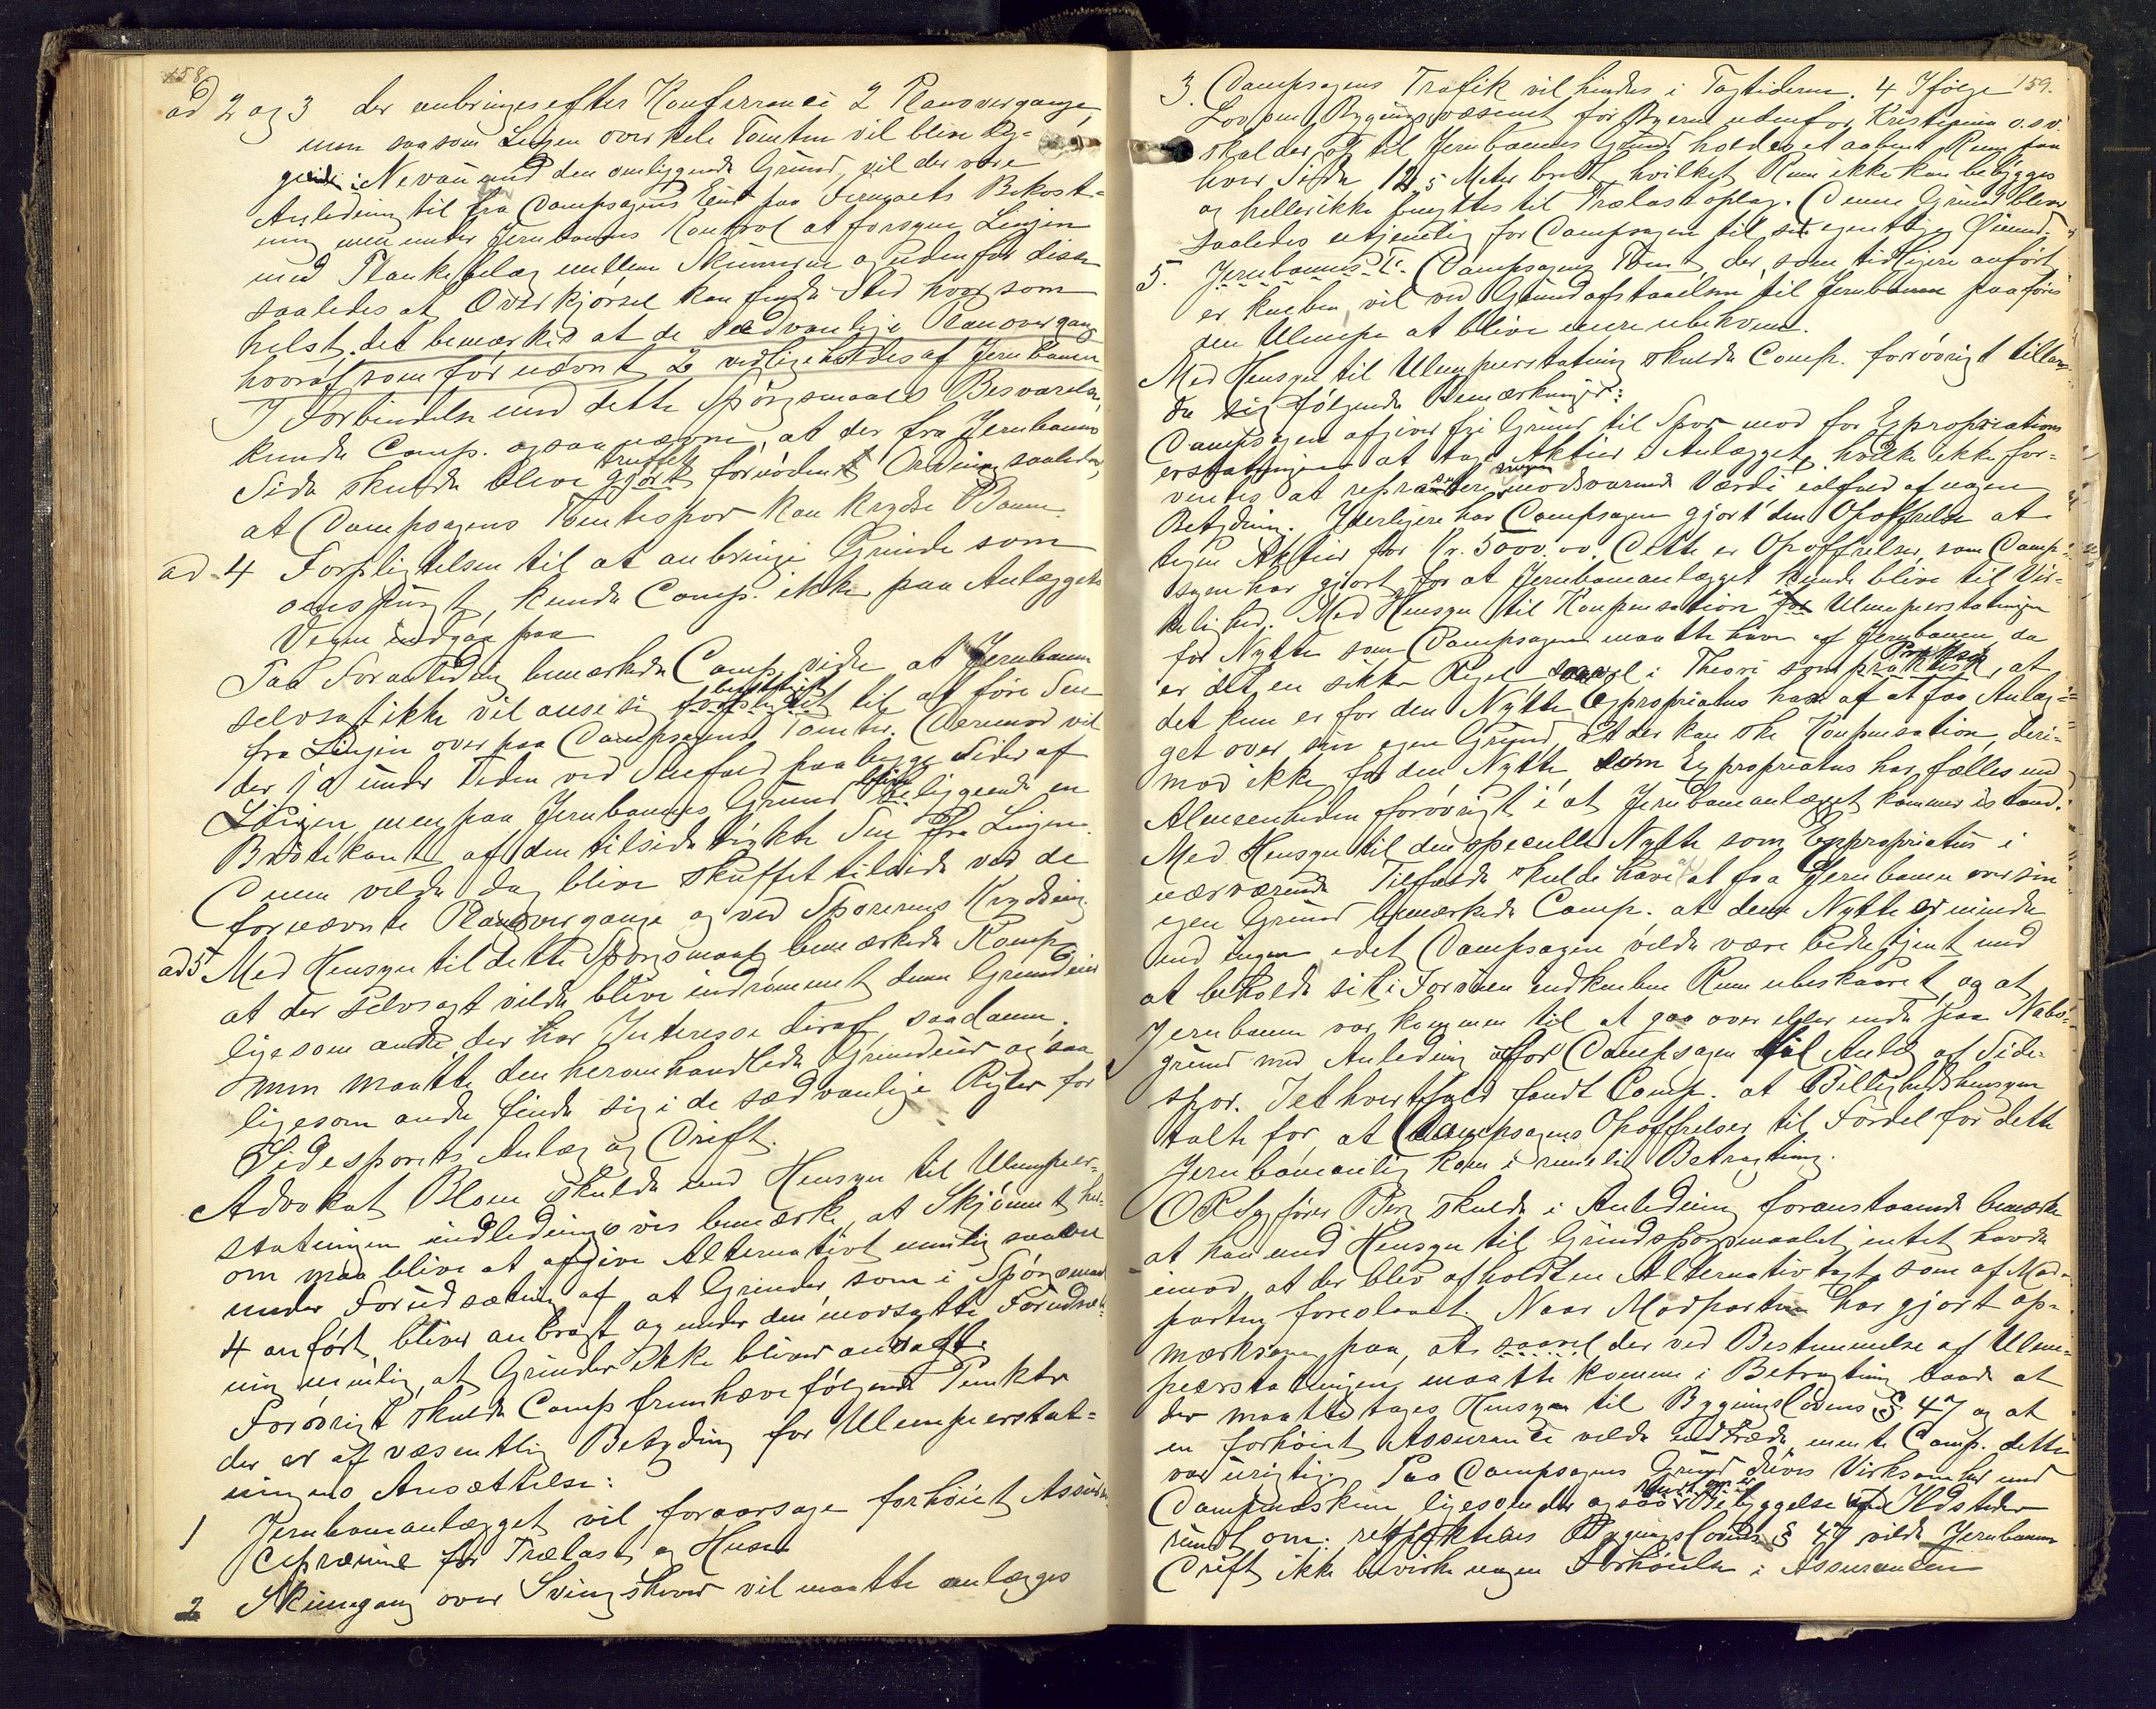 158
ad 2 og 3 der anbringes efter Konferance 2 Planovergange
men saasom Linjen over hele Tomten vil blive lig-
gende i Nevau med den omliggende Grund, vil der være
Anledning til fra Dampsagens Eiet paa Fermaets Bekost-
ning men under Jernbanens Kontrol at forsyne Linjen
med Plankebelæg mellem Skinnerne og udenfor disse
saaledes at Overkjørsel kan finde Sted hvorsom-
helst. det bemærkes at de sædvanlige Planovergang
hvoraf som før nævnt 2 vedligeholdes af Jernbanen
I Forbindelse med dette Spørgsmaals Besvarelse
kunde Comp. ogsaa nævne, at der fra Jernbanens
Side skulde blive gjort truffet fornøden Ordning saaledes,
at Dampsagens Tomtespor kan krydse Banen.
ad 4 Forpligtelsen til at anbringe Grinde som
omspurgt, kunde Comp. ikke paa Anlæggets
Vegne indgaa paa
Paa Foranledning bemærkede Comp. videre at Jernbanen
selvsagt ikke vil anse sig forpligtet berettiget til at føre Sne
fra Linjen over paa Dampsagens Tomter. Derimod vil
der jo under Tiden ved Snefald paa begge Sider af
Linjen men paa Jernbanens Grund blive liggende en
Brøitekant af den tilsiderykkede Sne fra Linjen.
Denne vilde dog blive skuffet tilside ved de
fornævnte Planovergange og ved Sporenes Krydsning
ad 5 Med Hensyn til dette Spørgsmaal bemærkede Komp.
at der selvsagt vilde blive indrømmet denne Grundeier
ligesom andre der har Interesse deraf, saadanne,
men maatte den heromhandlede Grundeier ogsaa
ligesom andre finde sig i de sædvanlige Regler for
Sidesporets Anlæg og Drift.
Advokat Blom skulde med Hensyn til Ulempeer-
statningen indledningsvis bemærke, at Skjønnet her-
om maa blive at afgive Alternativt nemlig saavel
under Forudsætning af at Grinder, som i Spørgsmaal
4 anført bliver anbragt og under den modsatte Forudsæt-
ning nemlig, at Grinder ikke bliver anbragt.
Forøvrigt skulde Comp fremhæve følgende Punkter
der er af væsentlig Betydning for Ulempeerstat-
ningens Ansættelse:
1 Jernbaneanlægget vil foraarsage forhøiet Assuran-
cepræmie for Trælast og Huse
2 Skinnegang over Svingskiver vil maatte anlægges
159.
3. Dampsagens Trafik vil hindres i Togtiderne. 4 Ifølge
Lov om Bygningsvæsenet for Byerne udenfor Kristiania o.s.v.
skal der op til Jernbanens Grund holdes et aabent Rum paa
hver Side 12,5 Meter bredt, hvilket Rum ikke kan bebygges
og heller ikke benyttes til Trælastoplag. Denne Grund bliver
saaledes utjenlig for Dampsagen til sit egentlige Øiemed.
5. Dampsagens Tomt, der, som tidligere anført
er kneben vil ved Grundafstaaelsen til Jernbanen paaføres
den Ulempe at blive mere ubekvem.
Med Hensyn til Ulempeerstatning skulde Comp. forøvrigt tillade
sig følgende Bemærkninger:
Dampsagen afgiver fri Grund til Spor mod for Expropriations
erstatningen at tage Aktier i Anlægget, hvilke ikke for-
ventes at repræsentere nogen modsvarende Værdi ialfald af nogen
Betydning. Yderligere har Dampsagen gjort den Opofrelse at
tegne Aktier for Kr. 5000.00. Dette er Opoffrelser, som Damp-
sagen har gjort for at Jernbaneanlægget kunde blive til Vir-
kelighed. Med Hensyn til Kompensation i Ulempeerstatningen
for Nytte som Dampsagen maatte have af Jernbanen, da
er det en sikker Regel saavel i Theori som Praksis, at
det kun er for den Nytte Expropriatus har af at faa Anlæg-
get over sin egen Grund, at der kan ske Kompensation, deri-
mod ikke for den Nytte, som Expropriatus har fælles med
Almeenheden forøvrigt i at Jernbaneanlægget kommer istand.
Med Hensyn til den specielle Nytte som Expropriatus i
nærværende Tilfælde skulde have af at faa Jernbanen over sin
egen Grund bemærkede Comp. at denne Nytte er mindre
end ingen idet Dampsagen vilde være bedre tjent med
at beholde sit i Forveien endknebne Rum ubeskaaret, og at
Jernbanen var kommen til at gaa over eller endte paa Nabo-
grund med Anledning for Dampsagen til Anlæg af Side-
spor. I ethvertfald fandt Comp. at Billighedshensyn
talte for at Dampsagens Opoffrelser til Fordel for dette
Jernbaneanlæg kom i rimelig Betragtning.
ORSagfører Berg skulde i Anledning foranstaaende bemærke
at han med Hensyn til Grindspørgsmaalet intet havde
imod at der blev afholdt en Alternativ Taxt som af Mod-
parten foreslaaet. Naar Modparten har gjort op-
mærksom paa, at saavel der ved Bestemmelse af Ulem-
peerstatningen maatte komme i Betragtning baade at
der maatte tages Hensyn til Bygningslovens § 47 og at
en forhøiet Assurance vilde indtræde, mente Comp. dette
var urigtig. Paa Dampsagens Grund drives Virksomhed med
Dampmaskine, ligesom der ogsaa er Bebyggelse med Ildsteder
rundt om: respektives Bygningslovens § 47 vilde Jernbanens
Drift ikke bevirke nogen Forhøielse i Assurancen